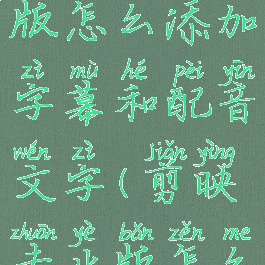 版怎么添加
zì mù hé pèi yīn
字幕和配音
wén zì jiǎn yìng
文字(剪映
zhuān yè bǎn zěn me
专业版怎么